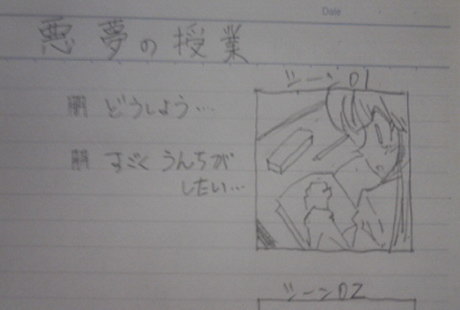 Date
悪夢の授業
シーン01
朋 どうしよう…
朋 すごくうんちが
したい…
シーン02